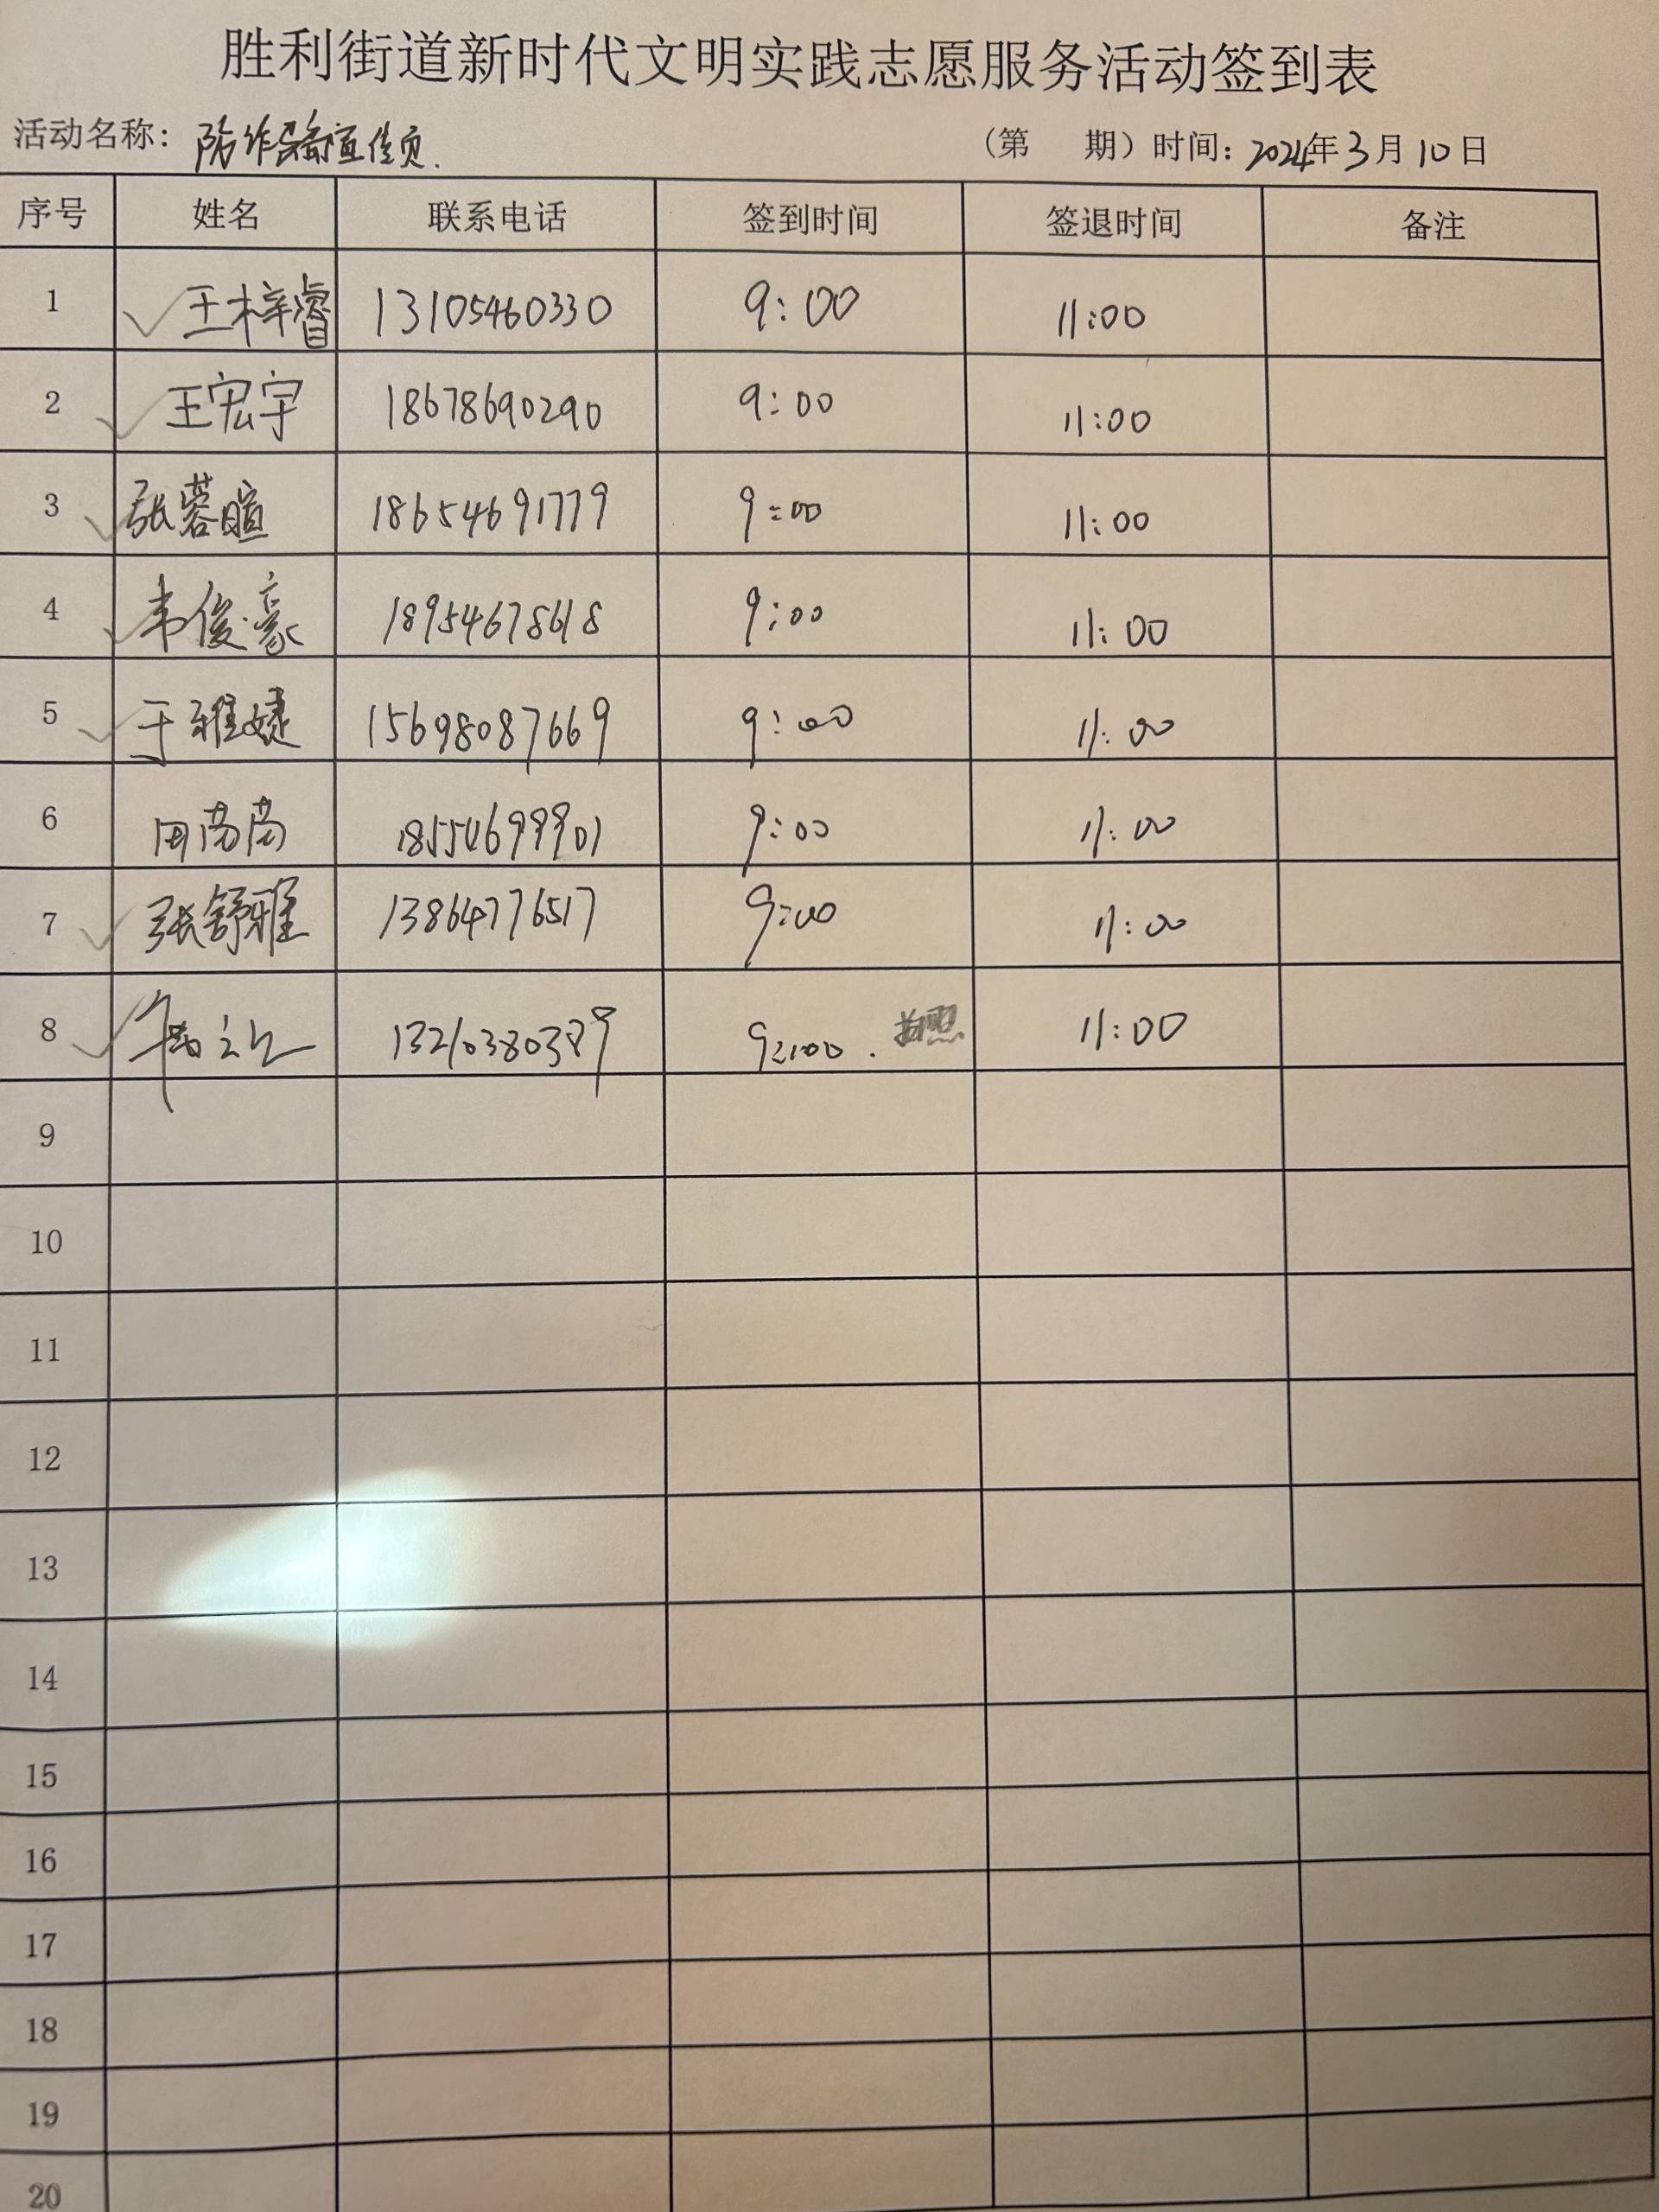 胜利街道新时代文明实践志愿服务活动签到表
活动名称：防诈骗宣传页. （第 期）时间：2024年3月10日
序号 姓名 联系电话 签到时间 签退时间 备注
1 ✓ 王梓睿 13105460330 9:00 11:00
2 ✓ 王宏宇 18678690290 9:00 11:00
3 ✓ 张蓉暄 18654691779 9:00 11:00
4 ✓ 韦俊豪 18954678618 9:00 11:00
5 ✓ 于雅婕 15698087669 9:00 11:00
6 田茜茜 18554699901 9:00 11:00
7 ✓ 张舒雅 13864776517 9:00 11:00
8 ✓ 13210380389 9:00. 拍照 11:00
9
10
11
12
13
14
15
16
17
18
19
20